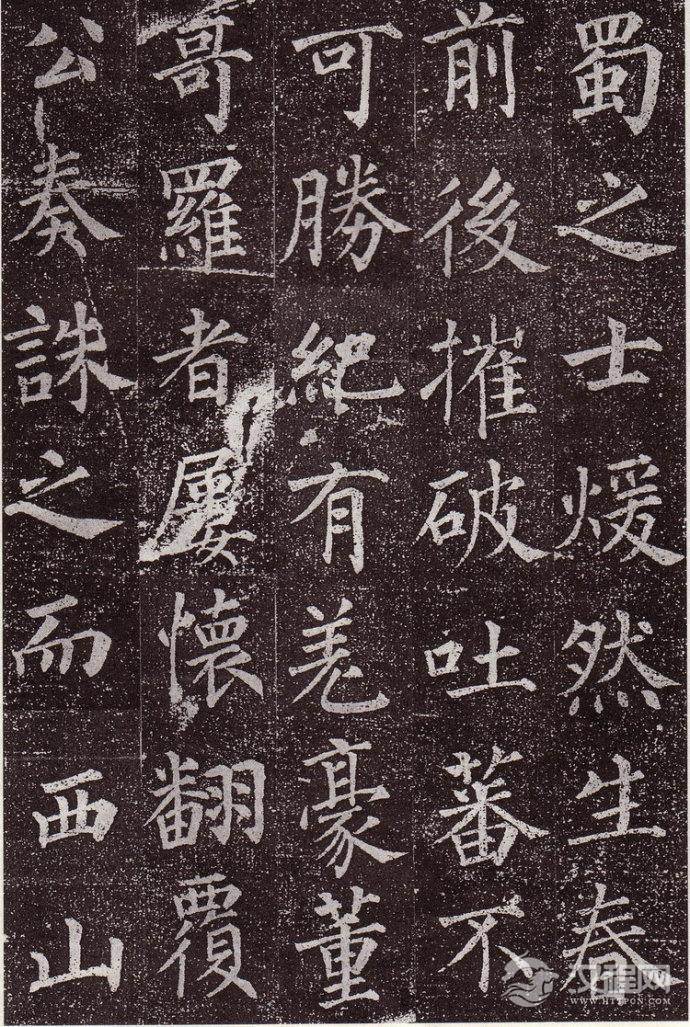 蜀之士煖然生春
前後摧破吐蕃不
可勝紀有羌豪董
哥羅者屢懷翻覆
公奏誅之而西山
WWW.HTTPCN.COM